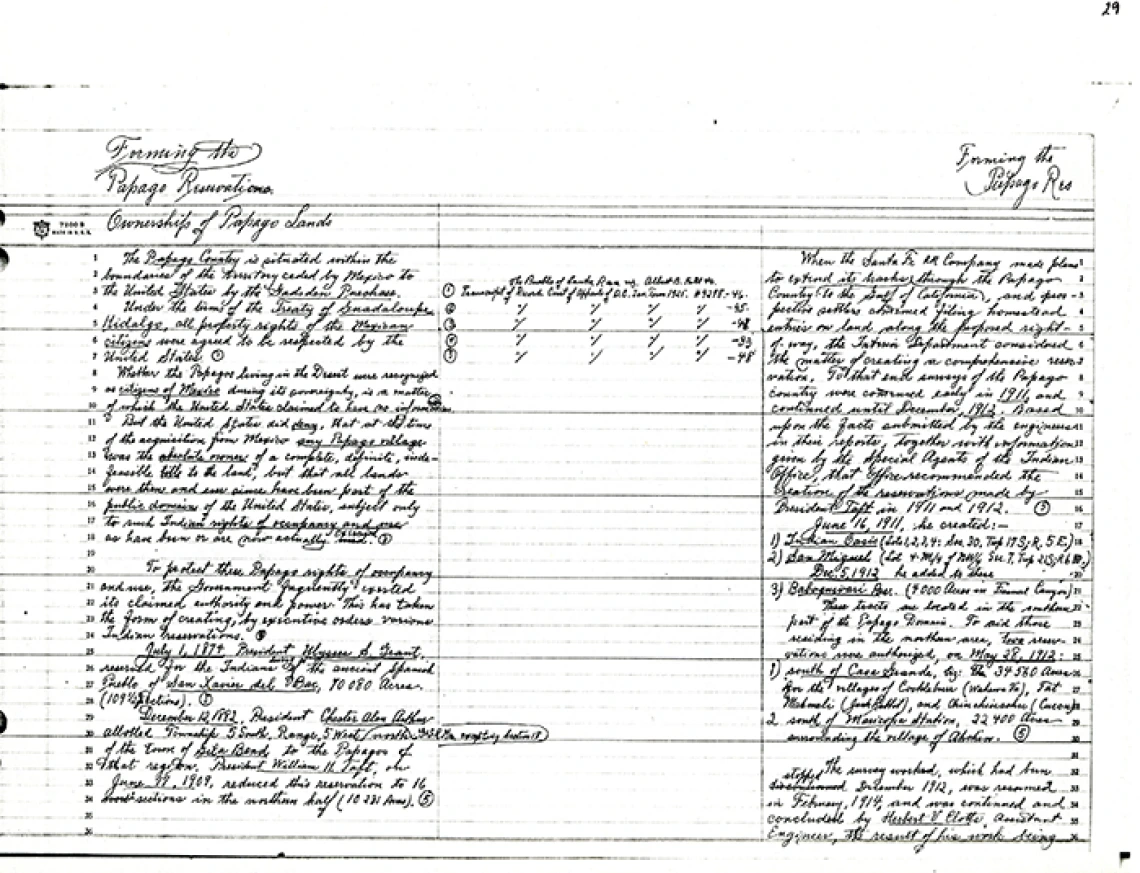 29
Forming the
Papago Reservations.
Forming the
Papago Res
Ownership of Papago Lands
1 The Papago Country is situated within the
2 boundaries of the Territory ceded by Mexico to
3 the United States by the Gadsden Purchase.
4 Under the terms of the Treaty of Guadaloupe
5 Hidalgo, all property rights of the Mexican
6 citizens were agreed to be respected by the
7 United States ①
8 Whether the Papagos living in the Desert were recognized
9 as citizens of Mexico during its sovereignty, is a matter
10 of which the United States claimed to have no information.
11 But the United States did deny, that at the time
12 of the acquisition from Mexico any Papago village
13 was the absolute owner of a complete, definite, inde-
14 feasible title to the land, but that all lands
15 were then and ever since have been part of the
16 public domain of the United States, subject only
17 to such Indian rights of occupancy and use
18 as have been or are now actually used. ③
19
20 To protect these Papago rights of occupancy
21 and use, the Government frequently exerted
22 its claimed authority and power. This has taken
23 the form of creating, by executive orders various
24 Indian reservations. ④
25 July 1, 1874 President Ulysses S. Grant,
26 reserved for the Indians living at the ancient Spanish
27 Pueblo of San Xavier del Bac, 70 080 Acres.
28 (109½ Sections). ①
29 December 12, 1882, President Chester Alan Arthur
30 allotted Township 5 South, Range, 5 West, north
31 of the town of Gila Bend to the Papagos of
32 that region. President William H. Taft, on
33 June 17, 1909, reduced this reservation to 16
34 sections in the northern half (10 231 Acres). ⑤
35
36
The Pueblo of Santa Rosa vs. Albert B. Fall &c.
① Transcript of Record Court of Appeals of D.C. Jan. Term 1925. #4288. -46.
② " " " " -45-
③ " " " " -48
④ " " " " -33
⑤ " " " " -48
except Section 18)
When the Santa Fe RR Company made plans
to extend its tracks through the Papago
Country to the Gulf of California, and pros-
pective settlers commenced filing homestead
entries on land along the proposed right-
of way, the Interior Department considered
the matter of creating a comprehensive reser-
vation. To that end surveys of the Papago
country were commenced early in 1911, and
continued until December, 1912. Based
upon the facts submitted by the engineers
in their reports, together with information
given by the Special Agents of the Indian
Office, that Office recommended the
creation of the reservations made by
President Taft in 1911 and 1912. ③
June 16, 1911, he created:—
1) Indian Oasis (Lots 1,2,3,4: Sec. 30, Twp 17 S; R, 5 E.)
2) San Miguel
Dec. 5, 1912 he added to these
3) Baboquivari Res. (4000 Acres in Fresnal Canyon)
These tracts are located in the southern
part of the Papago Domain. To aid those
residing in the northern area, two reser-
vations were authorized, on May 28, 1912:
1) south of Casa Grande, by: The 34 560 Acres
for the villages of Cockleburr
and Chiuchiuschu
2 south of Maricopa Station, 22 400 Acres
surrounding the village of ⑤
The survey worked, which had been
stopped December 1912, was resumed
in February, 1914, and was continued and
concluded by Herbert V. Clotts, Assistant
Engineer, the result of his work being